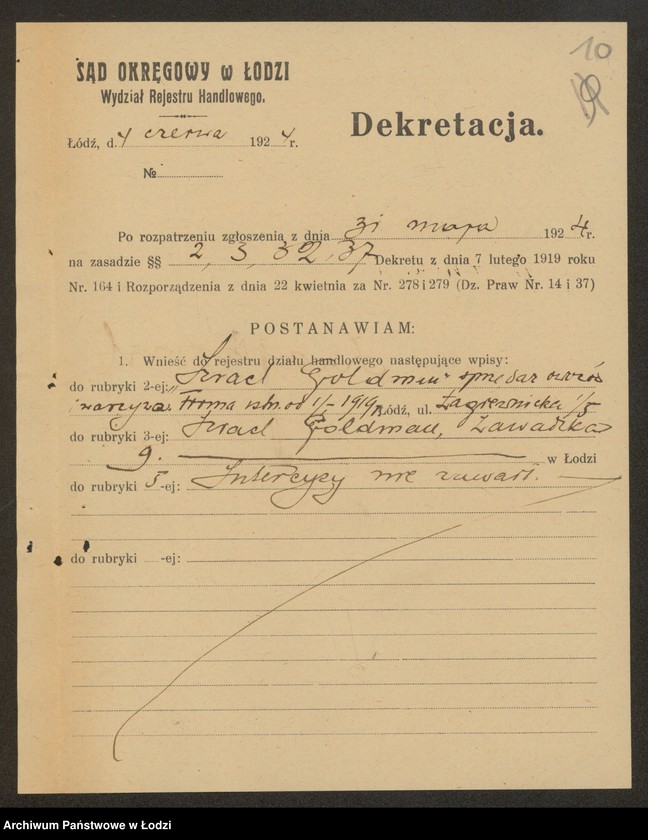 10
SĄD OKRĘGOWY w ŁODZI
Wydział Rejestru Handlowego.
Dekretacja.
Łódź, d. 4 czerwca 1924 r.
№
Po rozpatrzeniu zgłoszenia z dnia 31 maja 1924 r.
na zasadzie §§ 2, 3, 32, 37 Dekretu z dnia 7 lutego 1919 roku
Nr. 164 i Rozporządzenia z dnia 22 kwietnia za Nr. 278 i 279 (Dz. Praw Nr. 14 i 37)
POSTANAWIAM:
1. Wnieść do rejestru działu handlowego następujące wpisy:
do rubryki 2-ej: „Izrael Goldman" sprzedaż owoców
i warzywa. Firma istn. od 1/I 1919 r. Łódź, ul. Zagiewnicka 1/5
do rubryki 3-ej: Izrael Goldman, Zawadzka
9. w Łodzi
do rubryki 5-ej: Intercyzy nie zawarł.
do rubryki -ej:
Archiwum Państwowe w Łodzi